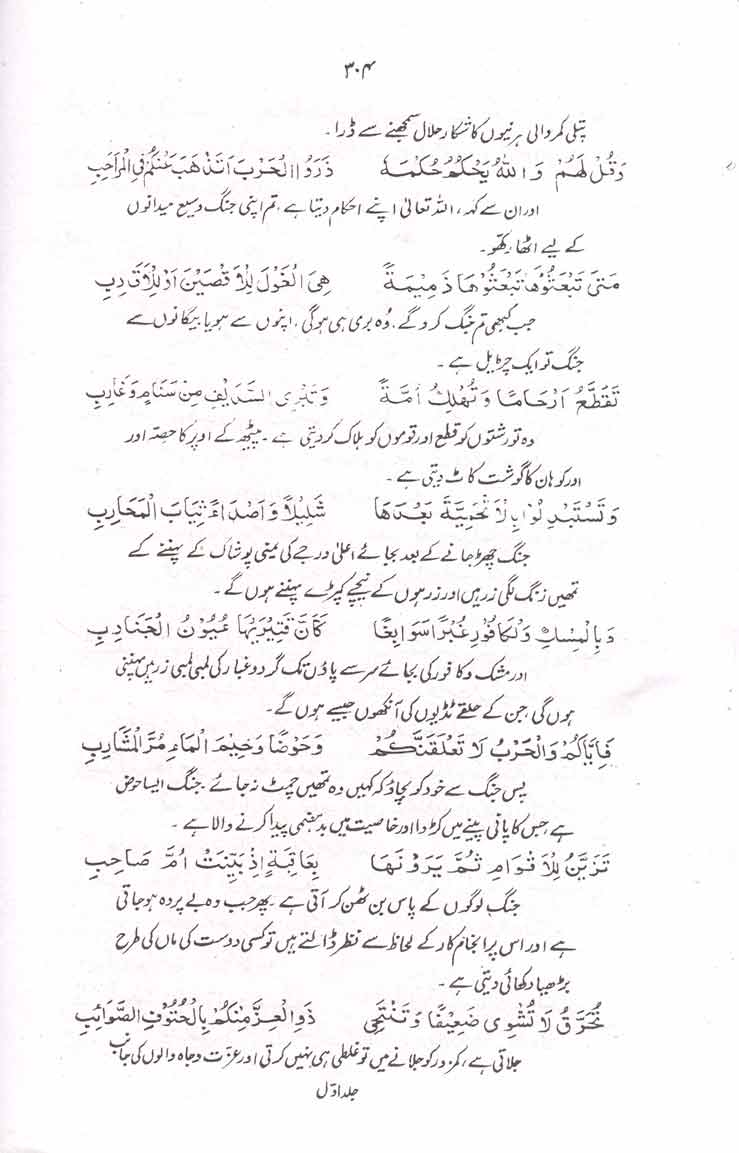 ۳۰۴
پتلی کمر والی ہرنیوں کا شکار حلال سمجھنے سے ڈرا۔
وَقُلْ لَهُمْ وَاللّٰهُ يَحْكُمُ حُكْمَهٗ ذَرُوا الْحَرْبَ تَذْهَبْ عَنْكُمْ فِي الْمَرَاحِبِ
اور ان سے کہہ، اللہ تعالیٰ اپنے احکام دیتا ہے، تم اپنی جنگ وسیع میدانوں
کے لیے اٹھا رکھو۔
مَتٰى تَبْعَثُوْهَا تَبْعَثُوْهَا ذَمِيْمَةً هِيَ الْغَوْلُ لِلْاَقْصَيْنَ اَوْ لِلْاَقَارِبِ
جب کبھی تم جنگ کرو گے، وُہ بری ہی ہوگی، اپنوں سے ہو یا بیگانوں سے
جنگ تو ایک چڑیل ہے۔
تَقَطَّعُ اَرْحَامًا وَتُهْلِكُ اُمَّةً وَتَبْرِى السَّدِيْفَ مِنْ سَنَامٍ وَغَارِبِ
وہ تو رشتوں کو قطع اور قوموں کو ہلاک کر دیتی ہے۔ پیٹھ کے اوپر کا حصتہ اور
اور کوہان کا گوشت کاٹ دیتی ہے۔
وَتَسْتَبْدِلُوْا بِالْاَتْحَمِيَّةِ بَعْدَهَا شَلِيْلًا وَاَصْدَاءً ثِيَابَ الْمَحَارِبِ
جنگ چھڑ جانے کے بعد بجائے اعلیٰ درجے کی یمنی پوشاک کے پہننے کے
تمھیں زنگ لگی زرہیں اور زرہوں کے نیچے کپڑے پہننے ہوں گے۔
وَبِالْمِسْكِ وَالْكَافُوْرِ غُبْرًا سَوَابِغًا كَاَنَّ قَتِيْرَيْهَا عُيُوْنُ الْجَنَادِبِ
اور مشک و کافور کی بجائے سر سے پاؤں تک گرد و غبار کی لمبی لمبی زرہیں پہننی
ہوں گی جن کے حلقے ٹڈیوں کی آنکھوں جیسے ہوں گے۔
فَاِيَّاكُمْ وَالْحَرْبَ لَا تَعْلَقَنَّكُمْ وَحَوْضًا وَخِيْمَ الْمَاءِ مُرَّ الْمَشَارِبِ
پس جنگ سے خود کو بچاؤ کہ کہیں وہ تمھیں چمٹ نہ جائے۔ جنگ ایسا حوض
ہے جس کا پانی پینے میں کڑوا اور خاصیت میں بدہضمی پیدا کرنے والا ہے۔
تَزَيَّنُ لِلْاَقْوَامِ ثُمَّ يَرَوْنَهَا بِعَاقِبَةٍ اِذْ بَيَّنَتْ اُمَّ صَاحِبِ
جنگ لوگوں کے پاس بن ٹھن کر آتی ہے۔ پھر جب وہ بے پردہ ہو جاتی
ہے اور اس پر انجام کار کے لحاظ سے نظر ڈالتے ہیں تو کسی دوست کی ماں کی طرح
بڑھیا دکھائی دیتی ہے۔
تُحَرِّقُ لَا تُشْوِى ضَعِيْفًا وَتَنْتَحِيْ ذَوِ الْعِزِّ مِنْكُمْ بِالْحُتُوْفِ الصَّوَائِبِ
جلاتی ہے، کمزور کو جلانے میں تو غلطی ہی نہیں کرتی اور عزت و جاہ والوں کی جانب
جلد اوّل